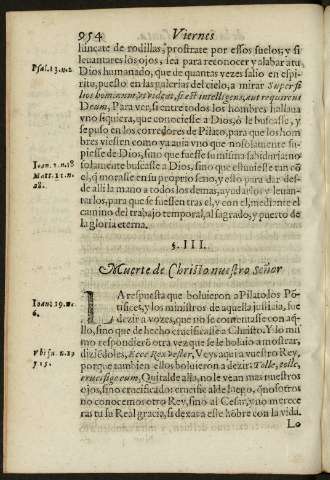 954 Viernes
hincate de rodillas, prostrate por essos suelos, y si
leuantares los ojos, sea para reconocer y alabar a tu
Psal. 13. n. 2.
Dios humanado, que de quantas vezes salio en espi-
ritu, puesto en las galerias del cielo, a mirar Super fi
lios hominum, vt videat, si est intelligens, aut requirens
Deum, Para ver, si entre todos los hombres hallaua
vno siquiera, que conociesse a Dios, ò le buscasse, y
se puso en los corredores de Pilato, para que los hom
bres viessen como ya auia vno que no solamente su-
piesse de Dios, sino que fuesse su misma sabiduria: no
Ioan. 1. n. 18
solamente buscasse a Dios, sino que estuuiesse tan cõ
Matt. 11. n.
el, q̃ morasse en su proprio seno, y esto para dar des-
28.
de alli la mano a todos los demas, ayudarlos y leuan-
tarlos, para que se suessen tras el, y con el, mediante el
camino del trabajo temporal, al sagrado, y puerto de
la gloria eterna.
§. III.
Muerte de Christo nuestro Señor
Ioan. 19. n.
6.
LA respuesta que boluieron a Pilato, los Põ-
tifices, y los ministros de aquesta justicia, fue
dezir a vozes, que no se contentasse con aq̃-
llo, sino que de hecho crucificasse a Christo. Y lo mis
mo respondierõ otra vez que se le boluio a mostrar,
Vbi su. n. 14
diziẽdoles, Ecce Rex vester, Veys aqui a vuestro Rey,
y 15.
porque tambien ellos boluieron a dezir: Tolle, tolle,
crucifige eum, Quitalde alla, no le vean mas nuestros
ojos, sino crucificado: crucificalde luego, q̃ nosotros
no conocemos otro Rey, sino al Cesar, y no merece
ras tu su Real gracia, si dexas a esse hõbre con la vida.
Lo